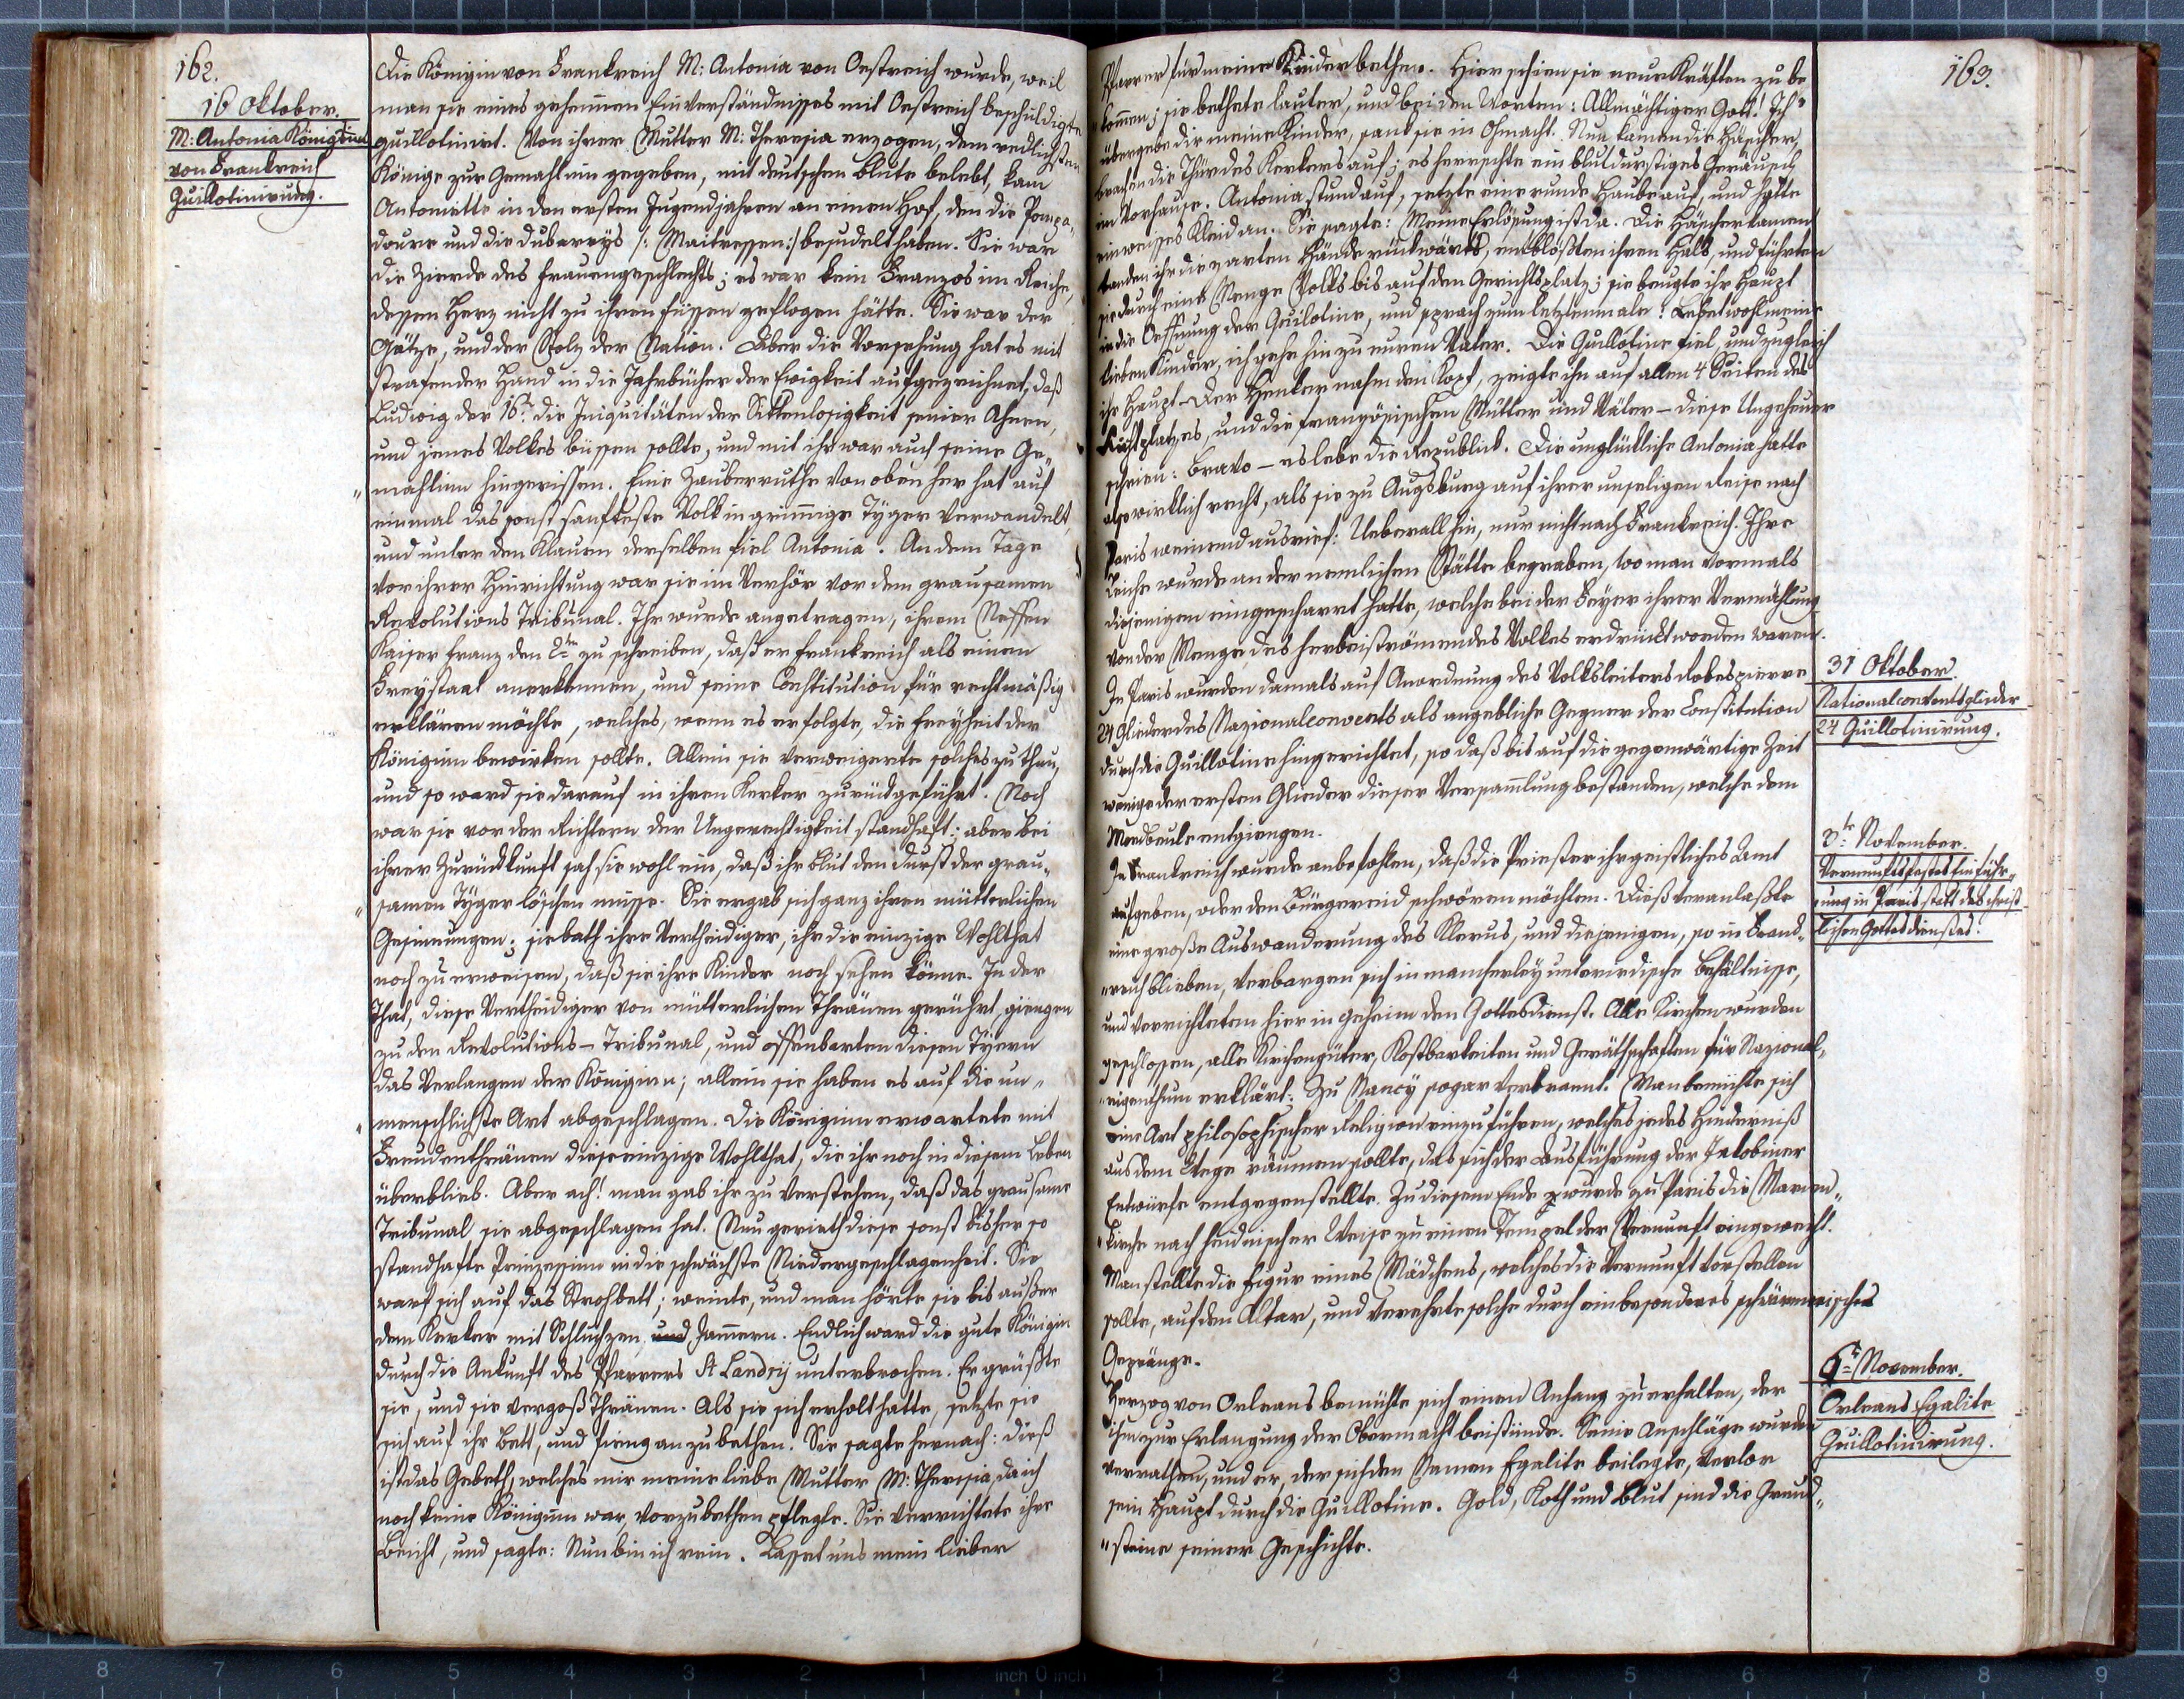 162.
16 Oktober.
M: Antonia Königinn
von Frankreich
Guillotinirung.
Die Königin von Frankreich M: Antonia von Oestreich wurde, weil
man sie eines geheimen Einverständnisses mit Oestreich beschuldigte
guillotinirt. Von ihrer Mutter M: Theresia erzogen, dem redlichsten
Könige zur Gemahlinn gegeben, mit deutschen Blute belebt, kam
Antoniette in den ersten Jugendjahren an einen Hof, den die Pompa„
doure und die dubarrys /: Maitressen:/ besudelt haben. Sie war
die Zierde des Frauengeschlechts; es war kein Franzos im Reiche,
dessen Herz nicht zu ihren füssen geflogen hätte. Sie war der
Götze, und der Stolz der Nation. Aber die Vorsehung hat es mit
strafender Hand in die Jahrbücher der Ewigkeit aufgezeichnet, daß
Ludwig der 16te die Iniquitäten der Sittenlosigkeit seiner Ahnen,
und jenes Volkes büssen sollte, und mit ihr war auch seine Ge„
„mahlinn hingerissen. Eine Zauberruthe von oben her hat auf
einmal das sonst sanfteste Volk in grimmige Tyger verwandelt,
und unter den Klauen derselben fiel Antonia. An dem Tage
vor ihrer Hinrichtung war sie im Verhör vor dem grausamen
Revolutions Tribunal. Ihr wurde angetragen, ihrem Neffen
Kaiser Franz den 2ten zu schreiben, daß er Frankreich als einen
Freystaat anerkennen, und seine Constitution für rechtmäßig
erklären möchte, welches, wenn es erfolgte, die Freyheit der
Königinn bewirken sollte. Allein sie verweigerte solches zu thun,
und so ward sie darauf in ihren Kerker zurückgeführt. Noch
war sie vor der Richtern der Ungerechtigkeit standhaft: aber bei
ihrer Zurückkunft sah sie wohl ein, daß ihr Blut den Durst der grau„
„samen Tyger löschen müsse. Sie ergab sich ganz ihren mütterlichen
Gesinnungen; sie bath ihre Vertheidiger, ihr die einzige Wohlthat
noch zu erweisen, daß sie ihre Kinder noch sehen könne. In der
That, diese Vertheidiger von mütterlichen Thränen gerührt, giengen
zu den Revolutions-Tribunal, und offenbarten diesen Tyern
das Verlangen der Königinn; allein sie haben es auf die un„
„menschlichste Art abgeschlagen. Die Königinn erwartete mit
Freudenthränen diese einzige Wohlthat, die ihr noch in diesem Leben
überblieb. Aber ach! man gab ihr zu verstehen, daß das grausame
Tribunal sie abgeschlagen hat. Nun gerieth diese sonst bisher so
standhafte Prinzessinn in die schwächste Niedergeschlagenheit. Sie
warf sich auf das Strohbett; weinte, und man hörte sie bis außer
dem Kerker mit Schluchzen und Jammern. Endlich ward die gute Königin
durch die Ankunft des Pfarrers St Landry unterbrochen. Er grüßte
sie, und sie vergoß Thränen. Als sie sich erholt hatte, setzte sie
sich auf ihr Bett, und fieng an zu bethen. Sie sagte hernach: dieß
ist das Gebeth, welches mir meine liebe Mutter M: Theresia, da ich
noch keine Königinn war, vorzubethen pflegte. Sie verrichtete ihre
Beicht, und sagte: Nun bin ich rein. Lasset uns mein lieber
163.
Pfarrer für meine Kinder bethen. Hier schien sie neue Kräften zu be
kommen; sie bethete lauter, und bei den Worten: Allmächtiger Gott! Ich
übergebe dir meine Kinder, sank sie in Ohmacht. Nun kamen die Häscher,
brachen die Thür des Kerkers auf; es herrschte ein blutdurstiges Geräusch
im Vorhause. Antonia stund auf, setzte eine runde Haube auf, und hatte
ein weisses Kleid an. Sie sagte: Meine Erlösung ist da. Die Häscher kamen
banden ihr die zarten Hände rückwärts, entblößten ihren Hals, und führten
sie durch eine Menge Volks bis auf den Gerichtsplatz; sie beugte ihr Haupt
in die Oeffnung der Guilotine, und sprach zum letztenmale: Lebet wohl meine
lieben Kinder, ich gehe hin zu euren Vater. Die Guillotine fiel, und zugleich
ihr Haupt - Der Henker nahm den Kopf, zeigte ihn auf allen 4 Seiten des
Richtplatzes, und die französischen Mütter und Väter - diese Ungeheuer
schrien: Bravo - es lebe die Republick. Die unglückliche Antonia hatte
also wirklich recht, als sie zu Augsburg auf ihrer unseligen Reise nach
Paris weinend ausrief: Ueberall hin, nur nicht nach Frankreich. Ihre
Leiche wurde an der nemlichen Stätte begraben, wo man vormals
diejenigen eingescharrt hatte, welche bei der Feyer ihrer Vermählung
von der Menge des herbeiströmendes Volkes erdrückt worden waren.
31 Oktober.
Nationalconventsglieder
24 Guillotinirung.
In Paris wurden damals auf Anordnung des Volksleiters Robespierre
24 Glieder des Nazionalconvents als angebliche Gegner der Constitution
durch die Guillotine hingerichtet, so daß bis auf die gegenwärtige Zeit
wenige der ersten Glieder dieser Versammlung bestanden, welche dem
Mordbeule entgiengen.
3te November.
Vernunftsfestes Einführ„
rung in Paris statt des christ
lichen Gottesdienstes.
In Frankreich wurde anbefohlen, daß die Priester ihr geistliches Amt
aufgeben, oder den Bürgereid schwören möchten. Dieß veranlaßte
eine große Auswanderung des Klerus, und diejenigen, so in Frank„
„reich blieben, verbargen sich in mancherley unterirdische Behältnisse,
und verrichteten hier in geheim den Gottesdienst. Alle Kirchen wurden
geschlossen, alle Kirchengüter, Kostbarkeiten und Geräthschaften für Nazional„
„eigenthum erklärt: Zu Nancy sogar verbrannt. Man bemühte sich
eine Art philosophischer Religion einzuführen, welches jedes Hinderniß
aus dem Wege räumen sollte, das sich der Ausführung der Jakobiner
Entwürfe entgegenstellte. Zu diesem Ende wurde zu Paris die Marien„
„kirche nach heidnischer Weise zu einen Tempel der Vernunft eingeweiht.
Man stellte die Figur eines Mädchens, welches die Vernunft vorstellen
sollte, auf den Altar, und verehrte solche durch ein besonderes schwärmerisches
Gepränge.
6te November.
Orleans Egalite
Guillotinirung.
Herzog von Orleans bemühte sich einen Anhang zu erhalten, der
ihm zur Erlangung der Obermacht beistünde. Seine Anschläge wurden
verrathen, und er, der sich den Namen Egalite beilegte, verlor
sein Haupt durch die Guillotine. Gold, Koth und Blut sind die Grund„
„steine seiner Geschichte.
8 7 6 5 4 3 2 1 inch 0 inch 1 2 3 4 5 6 7 8 9